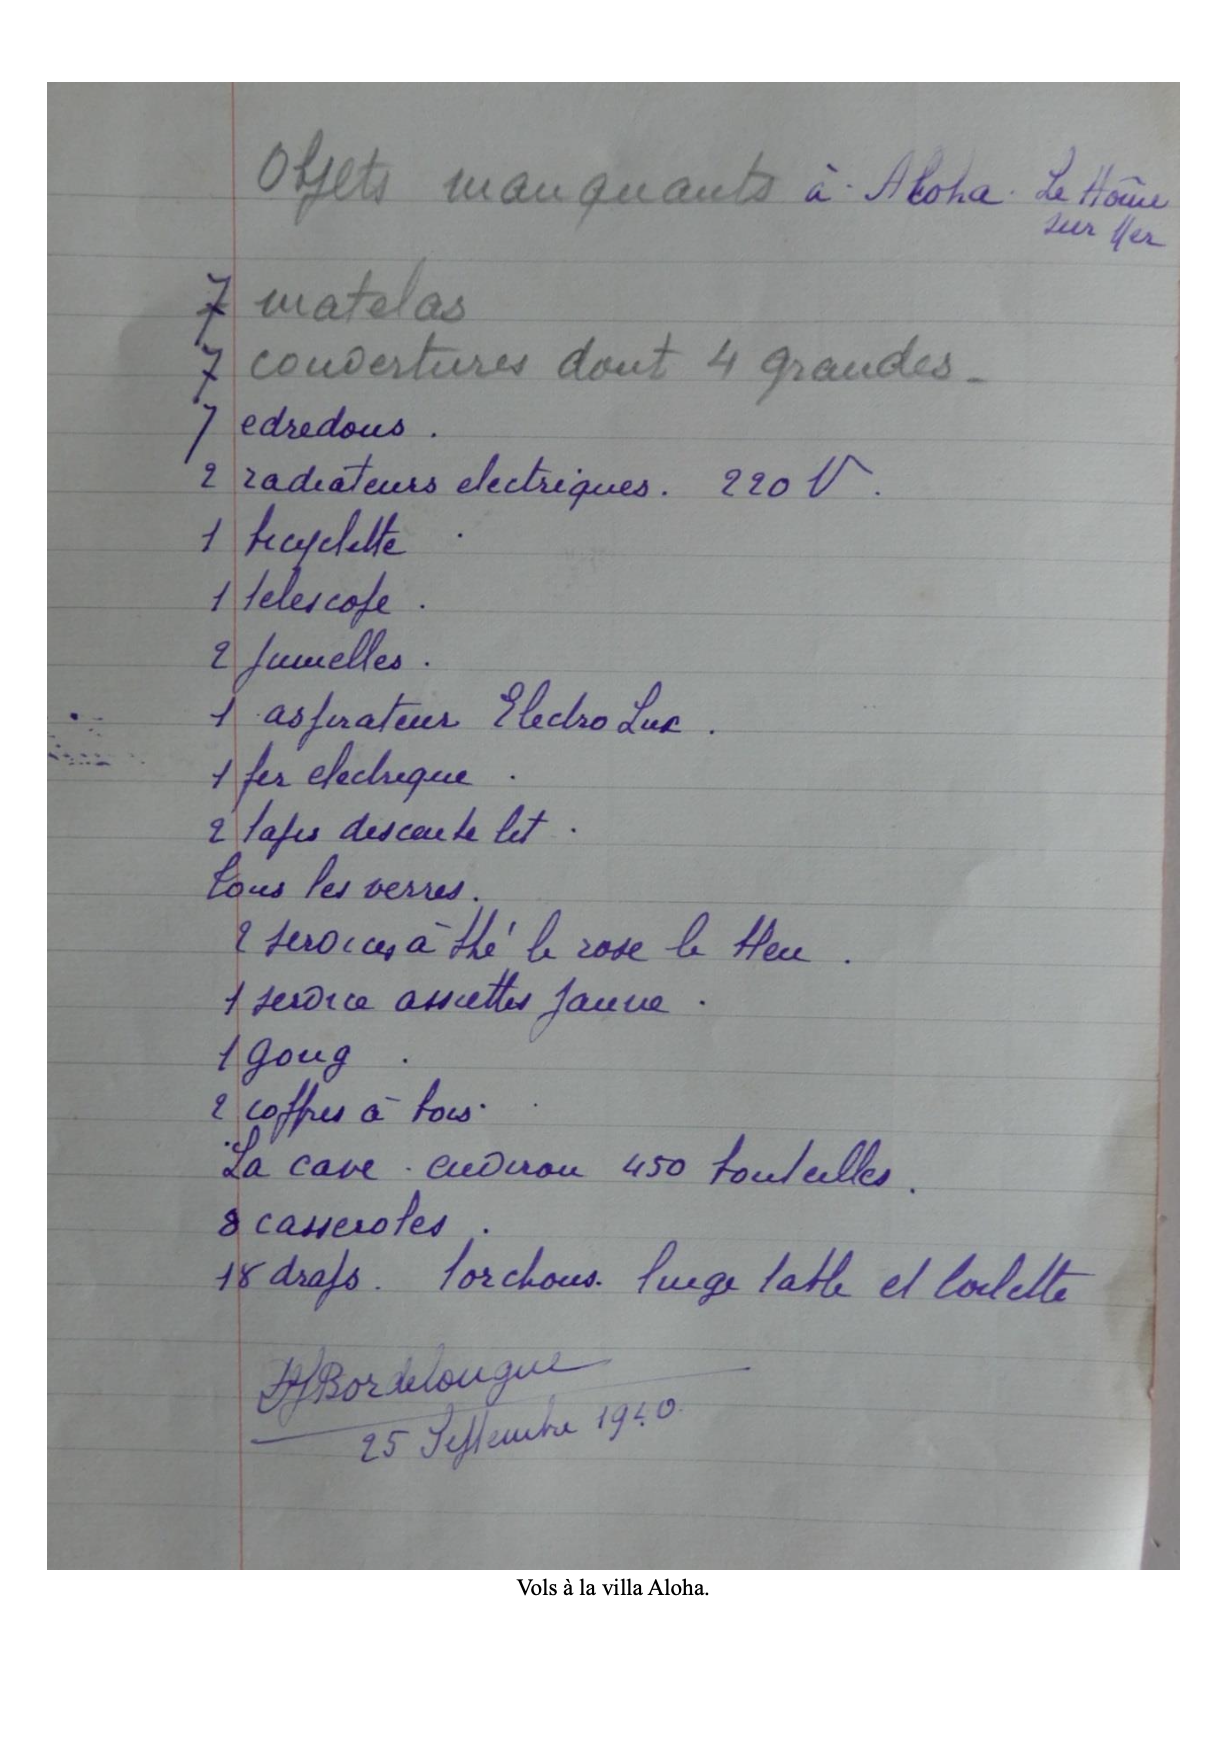 Objets manquants à Aloha. Le Hôme
sur Mer
7 matelas
7 couvertures dont 4 grandes -
7 edredons.
2 radiateurs electriques. 220 V.
1 bicyclette.
1 telescope.
2 jumelles.
1 aspirateur Electro Lux.
1 fer electrique.
2 tapis descente lit.
Tous les verres.
2 services à thé le rose le bleu.
1 service assiettes jaune.
1 gong.
2 coffres à bois.
La cave. environ 450 bouteilles.
8 casseroles.
18 draps. torchons. linge table et toilette
Bordelongue
25 Septembre 1940.
Vols à la villa Aloha.